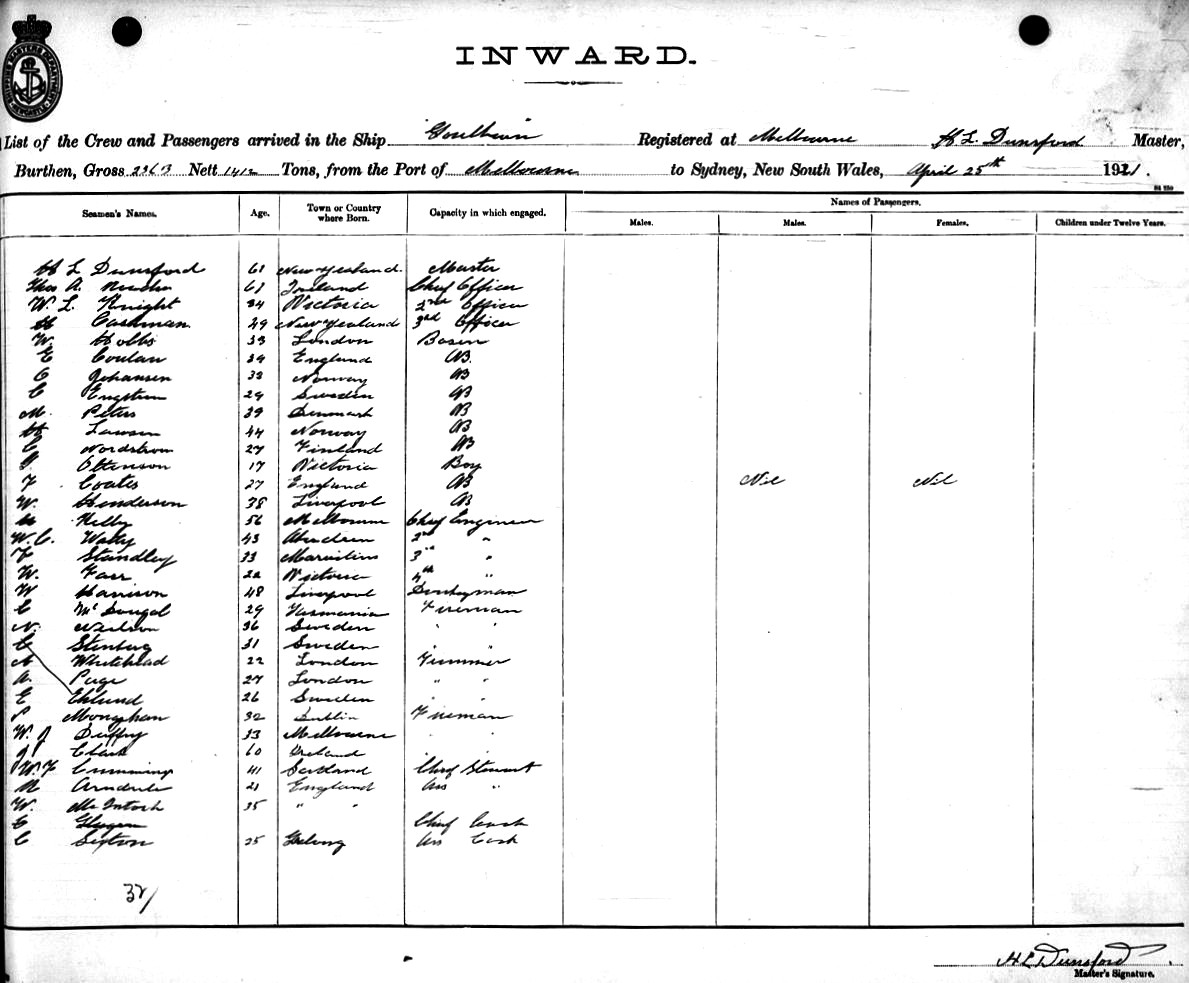 INWARD.
List of the Crew and Passengers arrived in the Ship Goulburn Registered at Melbourne H L Dunsford Master,
Burthen, Gross 2263 Nett 1412 Tons, from the Port of Melbourne to Sydney, New South Wales, April 25th 1921.
Seamen's Names. Age. Town or Country where Born. Capacity in which engaged. Names of Passengers.
Males. Males. Females. Children under Twelve Years.
H L Dunsford 61 New Zealand. Master
Thos A. 61 Ireland Chief Officer
W. L. Knight 34 Victoria 2nd Officer
H Cashman. 29 New Zealand 3rd Officer
W. Hobbs 33 London Bosun
E Coulan 34 England AB.
C Johansen 32 Norway AB
C Engstrom 29 Sweden AB
M. Peters 39 Denmark AB
H Lawson 44 Norway AB
C Nordstrom 27 Finland AB
Ottenson 17 Victoria Boy
F Coates 27 England AB Nil Nil
W. Henderson 38 Liverpool AB
Kelly 56 Melbourne Chief Engineer
W. C. Watty 43 Aberdeen 2nd "
F Standley 33 Mauritius 3rd "
W. Farr 22 Victoria 4th "
W Harrison 48 Liverpool Donkeyman
C McDougal 29 Tasmania Fireman
N. Neilson 36 Sweden " "
C Stenberg 31 Sweden " "
A Whitehead 22 London Trimmer
A. Page 27 London " "
E Eklund 26 Sweden " "
P Monaghan 32 Dublin Fireman
W. J Duffy 33 Melbourne " "
J Clark 60 Ireland " "
W. F Cumming 41 Scotland Chief Steward
N Arundale 21 England Ass "
W. McIntosh 35 " "
C Chief Cook
C Sexton 25 Geelong Ass Cook
32/
H L Dunsford
Master's Signature.